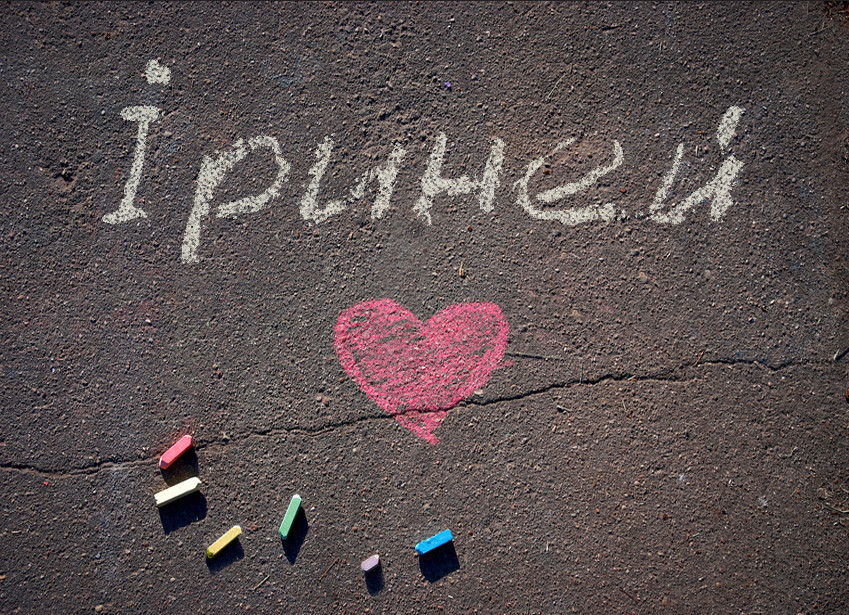 Іриней